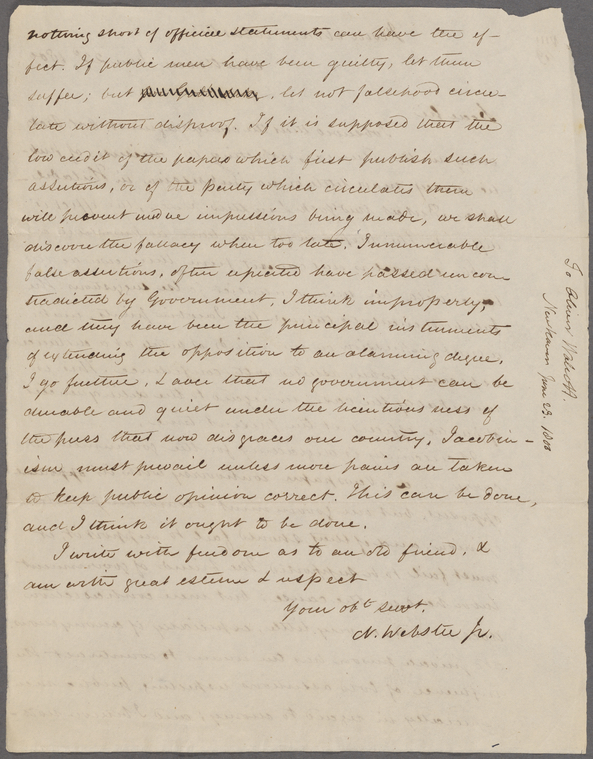 nothing short of official statements can have the ef-
fect. If public men have been guilty, let them
suffer; but , let not falsehood circu-
late without disproof. If it is supposed that the
low credit of the papers which first publish such
assertions, or of the party which circulates them
will prevent undue impressions being made, we shall
discover the fallacy when too late. Innumerable
false assertions, often repeated have passed uncon
tradicted by Government, I think improperly;
and they have been the principal instruments
of extending the opposition to an alarming degree.
I go further, & aver that no government can be
durable and quiet under the licentiousness of
the press that now disgraces our country. Jacobin-
ism must prevail unless more pains are taken
to keep public opinion correct. This can be done,
and I think it ought to be done.
I write with freedom as to an old friend, &
am with great esteem & respect
Your obt servt.
N. Webster Jr.
To Oliver Wolcott.
New Haven June 23. 1800